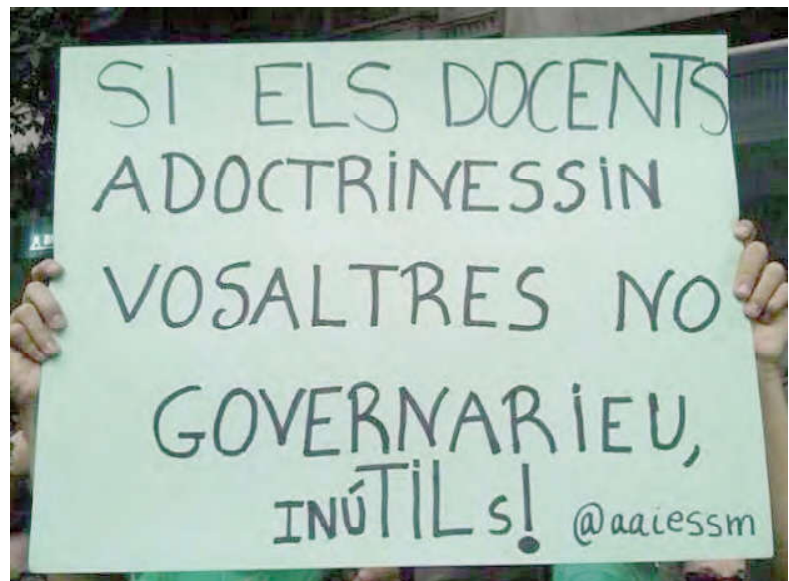 SI ELS DOCENTS
ADOCTRINESSIN
VOSALTRES NO
GOVERNARIEU,
INÚTILS! @aaiessm